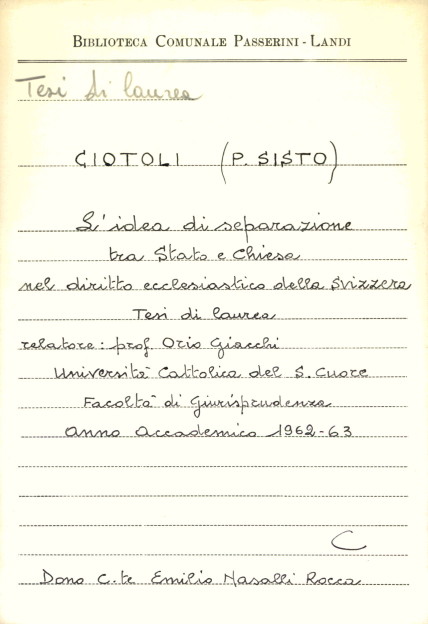 BIBLIOTECA COMUNALE PASSERINI - LANDI
Tesi di laurea
CIOTOLI (P. SISTO)
L'idea di separazione
tra Stato e Chiesa
nel diritto ecclesiastico della Svizzera
Tesi di laurea
relatore: prof. Orio Giacchi
Università Cattolica del S. Cuore
Facoltà di Giurisprudenza
Anno Accademico 1962-63
C
Dono C.te Emilio Nasalli Rocca